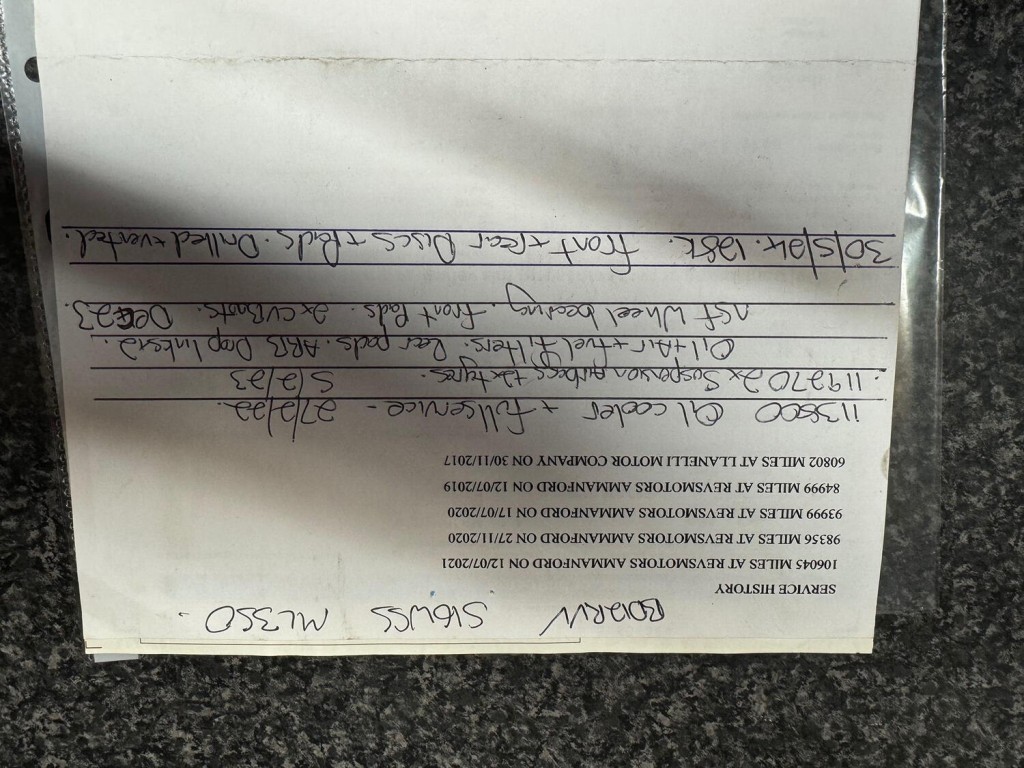 BO12RW S16WSS ML350.
SERVICE HISTORY
106045 MILES AT REVSMOTORS AMMANFORD ON 12/07/2021
98356 MILES AT REVSMOTORS AMMANFORD ON 27/11/2020
93999 MILES AT REVSMOTORS AMMANFORD ON 17/07/2020
84999 MILES AT REVSMOTORS AMMANFORD ON 12/07/2019
60802 MILES AT LLANELLI MOTOR COMPANY ON 30/11/2017
113800 Oil cooler + full service - 27/2/22.
119270 2x Suspension airbags + 2x tyres. 5/2/23
Oil + Air + fuel filters. Rear pads. ARB Drop links x2.
NSF Wheel bearing. Front Pads. 2x CV Boots. Dec 23.
30/5/24. 128k. front + rear Discs + Pads. Drilled + vented.